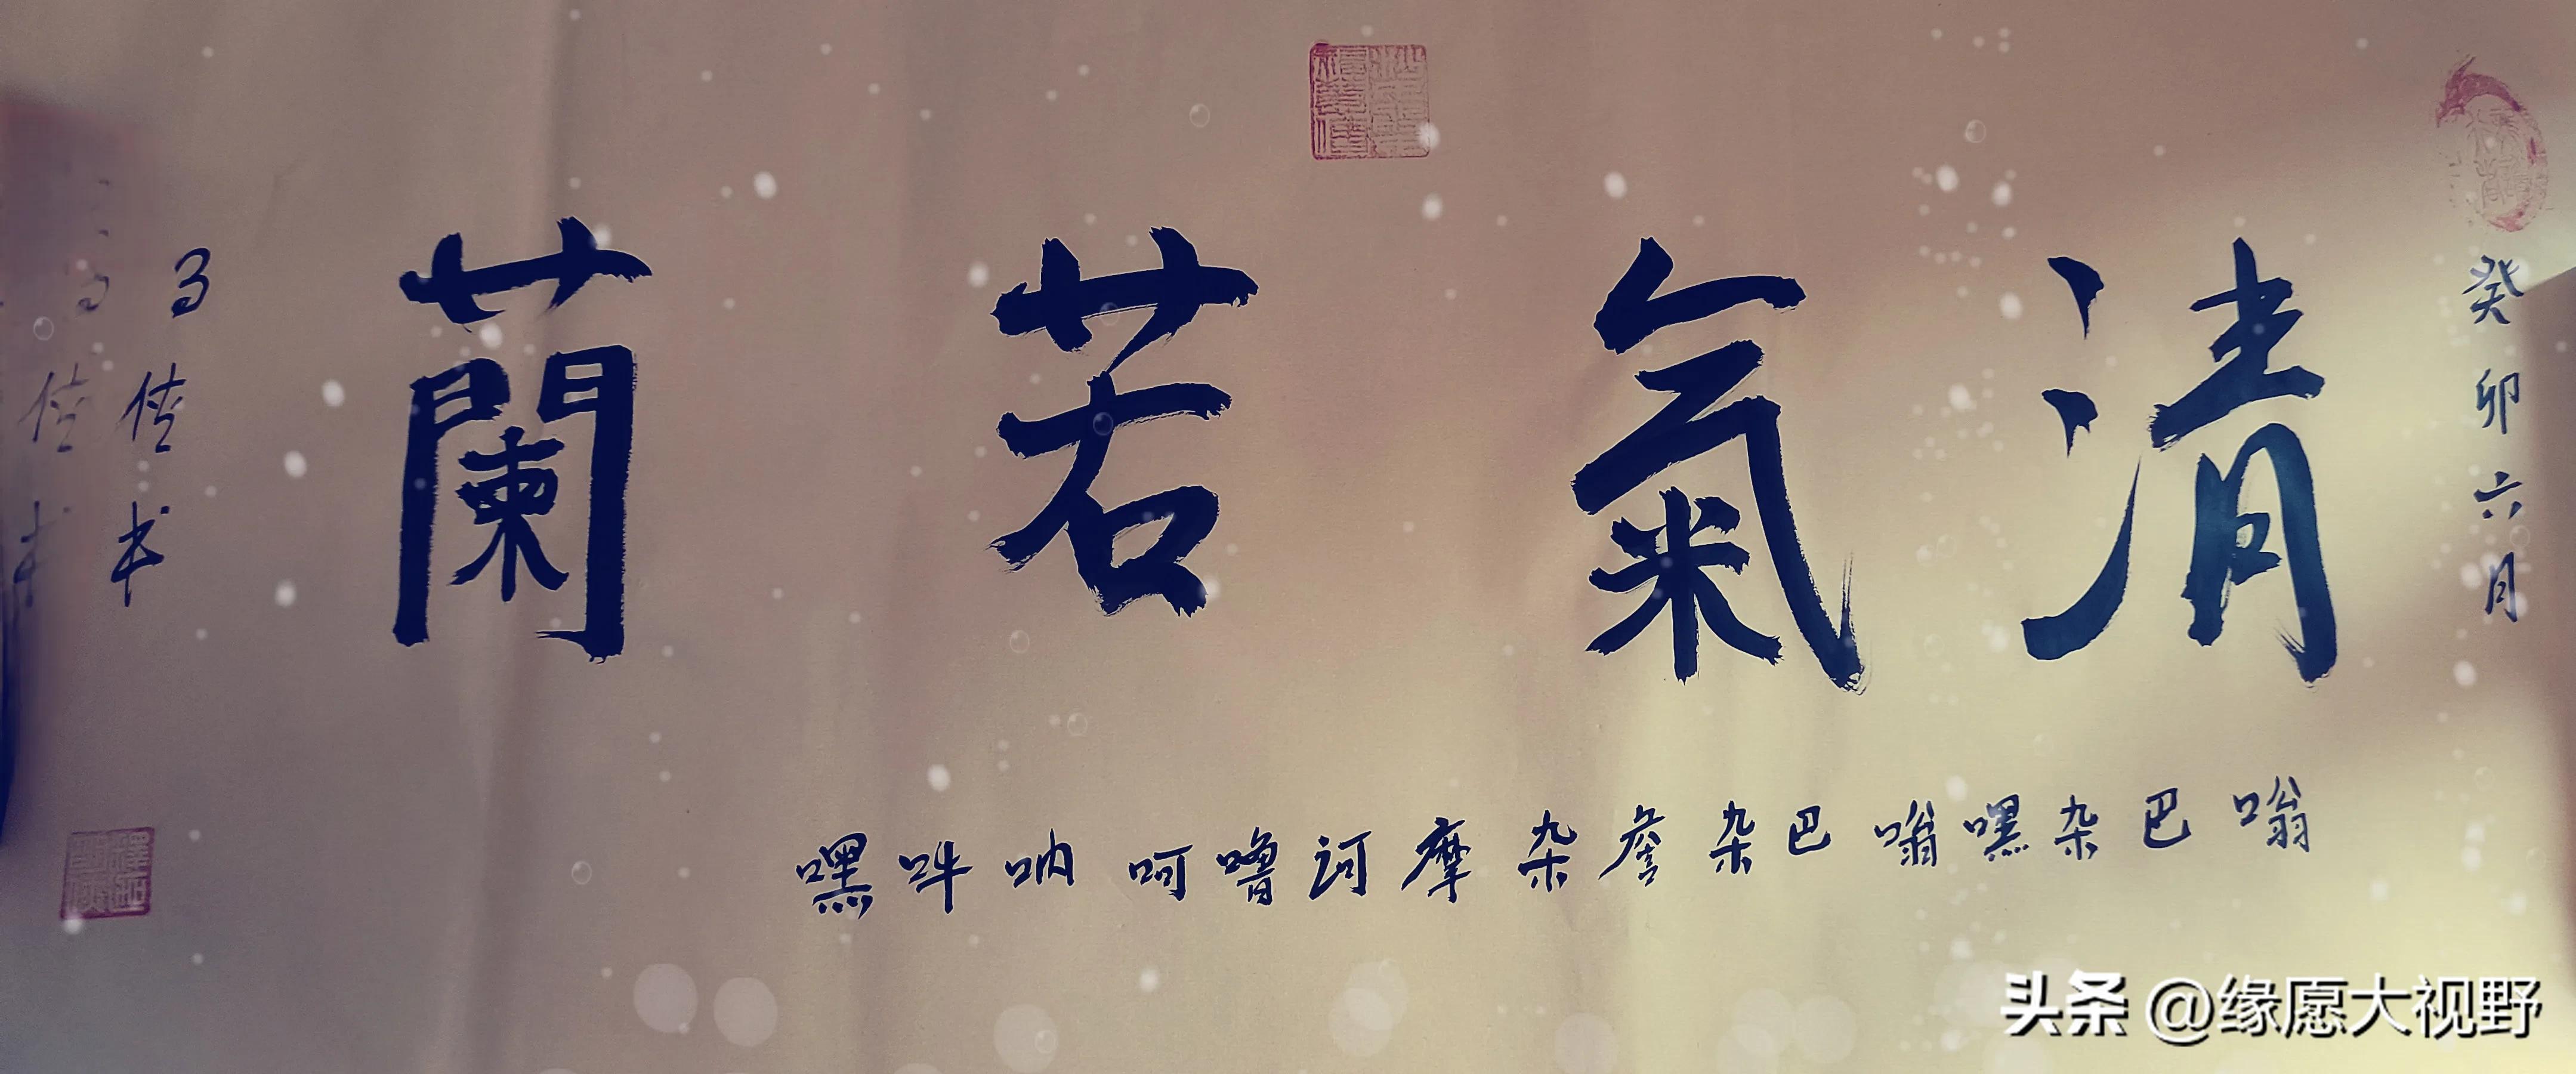 癸卯六月
清氣若蘭
嗡巴杂嘿嗡巴杂詹杂摩诃噜呵呐吽嘿
书
头条 @缘愿大视野